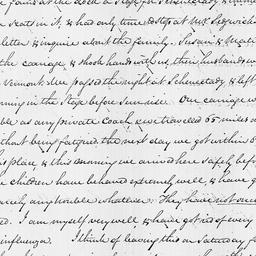 seats in it, & had only time to stop at Mr. Sedgwick
letter & inquire about the family. Susan &
the carriage, & shook hands with us, their husbands w
Vermont. We passed the night at Schenectady & left
rning in the Stage before Sunrise. Our carriage w
ble as any private Coach, & we travelled 65 miles a
thout being fatigued. the next day we got within 6
his place, & this morning we arrived here safely befo
e children have behaved extremely well, & have g
rcely any trouble whatever. They have not once
ed. I am myself very well & have got rid of every
influenza. I think of leaving this on Saturday f